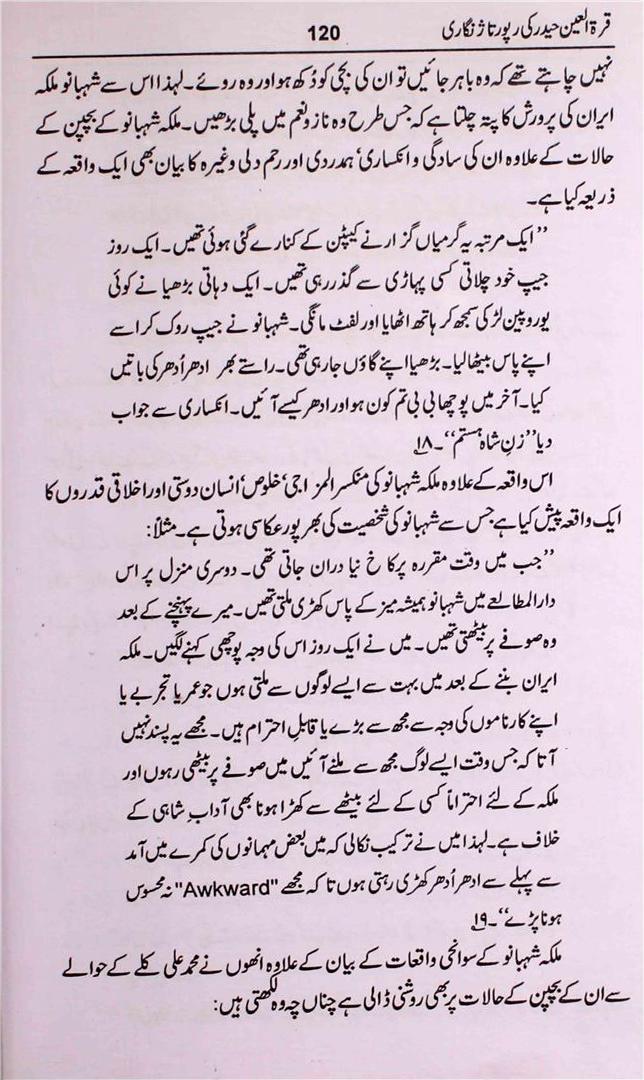 قرۃ العین حیدر کی رپورتاژ نگاری
120
نہیں چاہتے تھے کہ وہ باہر جائیں تو ان کی بچی کو دُکھ ہو اور وہ روئے۔ لہٰذا اس سے شہبانو ملکہ
ایران کی پرورش کا پتہ چلتا ہے کہ جس طرح وہ ناز و نعم میں پلی بڑھیں۔ ملکہ شہبانو کے بچپن کے
حالات کے علاوہ ان کی سادگی و انکساری، ہمدردی اور رحم دلی وغیرہ کا بیان بھی ایک واقعہ کے
ذریعہ کیا ہے۔
”ایک مرتبہ یہ گرمیاں گزارنے کیپئن کے کنارے گئی ہوئی تھیں۔ ایک روز
جیپ خود چلاتی کسی پہاڑی سے گذر رہی تھیں۔ ایک دہاتی بڑھیا نے کوئی
یوروپین لڑکی سمجھ کر ہاتھ اٹھایا اور لفٹ مانگی۔ شہبانو نے جیپ روک کر اسے
اپنے پاس بیٹھا لیا۔ بڑھیا اپنے گاؤں جا رہی تھی۔ راستے بھر ادھر اُدھر کی باتیں
کیا۔ آخر میں پوچھا بی بی تم کون ہو اور ادھر کیسے آئیں۔ انکساری سے جواب
دیا ”زنِ شاہ ہستم“۔ ۱۸
اس واقعہ کے علاوہ ملکہ شہبانو کی منکسر المزاجی، خلوص، انسان دوستی اور اخلاقی قدروں کا
ایک واقعہ پیش کیا ہے جس سے شہبانو کی شخصیت کی بھر پور عکاسی ہوتی ہے۔ مثلاً:
”جب میں وقت مقررہ پر کاخ نیاوران جاتی تھی۔ دوسری منزل پر اس
دارالمطالعے میں شہبانو ہمیشہ میز کے پاس کھڑی ملتی تھیں۔ میرے پہنچنے کے بعد
وہ صوفے پر بیٹھتی تھیں۔ میں نے ایک روز اس کی وجہ پوچھی کہنے لگیں۔ ملکہ
ایران بننے کے بعد میں بہت سے ایسے لوگوں سے ملتی ہوں جو عمر یا تجربے یا
اپنے کارناموں کی وجہ سے مجھ سے بڑے یا قابلِ احترام ہیں۔ مجھے یہ پسند نہیں
آتا کہ جس وقت ایسے لوگ مجھ سے ملنے آئیں میں صوفے پر بیٹھی رہوں اور
ملکہ کے لئے احتراماً کسی کے لئے بیٹھے سے کھڑا ہونا بھی آدابِ شاہی کے
خلاف ہے۔ لہٰذا میں نے ترکیب نکالی کہ میں بعض مہمانوں کی کمرے میں آمد
سے پہلے سے ادھر اُدھر کھڑی رہتی ہوں تا کہ مجھے "Awkward" نہ محسوس
ہونا پڑے“۔ ۱۹
ملکہ شہبانو کے سوانحی واقعات کے بیان کے علاوہ انھوں نے محمد علی کلے کے حوالے
سے ان کے بچپن کے حالات پر بھی روشنی ڈالی ہے چناں چہ وہ لکھتی ہیں: